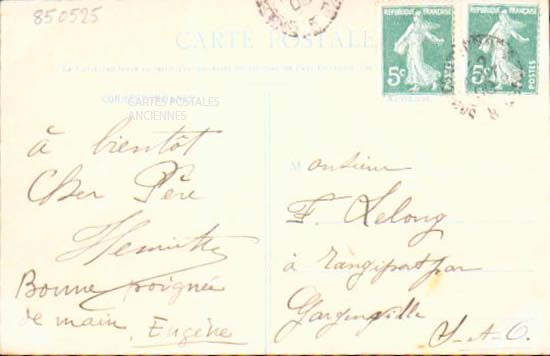 850525
CARTE POSTALE
REPUBLIQUE FRANÇAISE
5c
POSTES
REPUBLIQUE FRANÇAISE
5c
POSTES
CORRESPONDANCE
CARTES POSTALES
ANCIENNES
à bientôt
Cher Père
Henriette
Bonne poignée
de main, Eugène
Monsieur
F. Lelong
à Rangiport par
Gargenville
S-et-O.